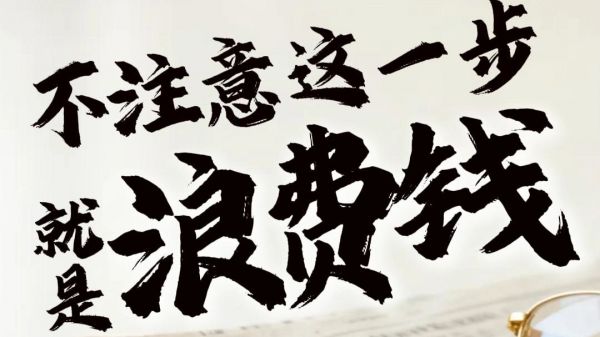 不注意这一步
就是浪费钱